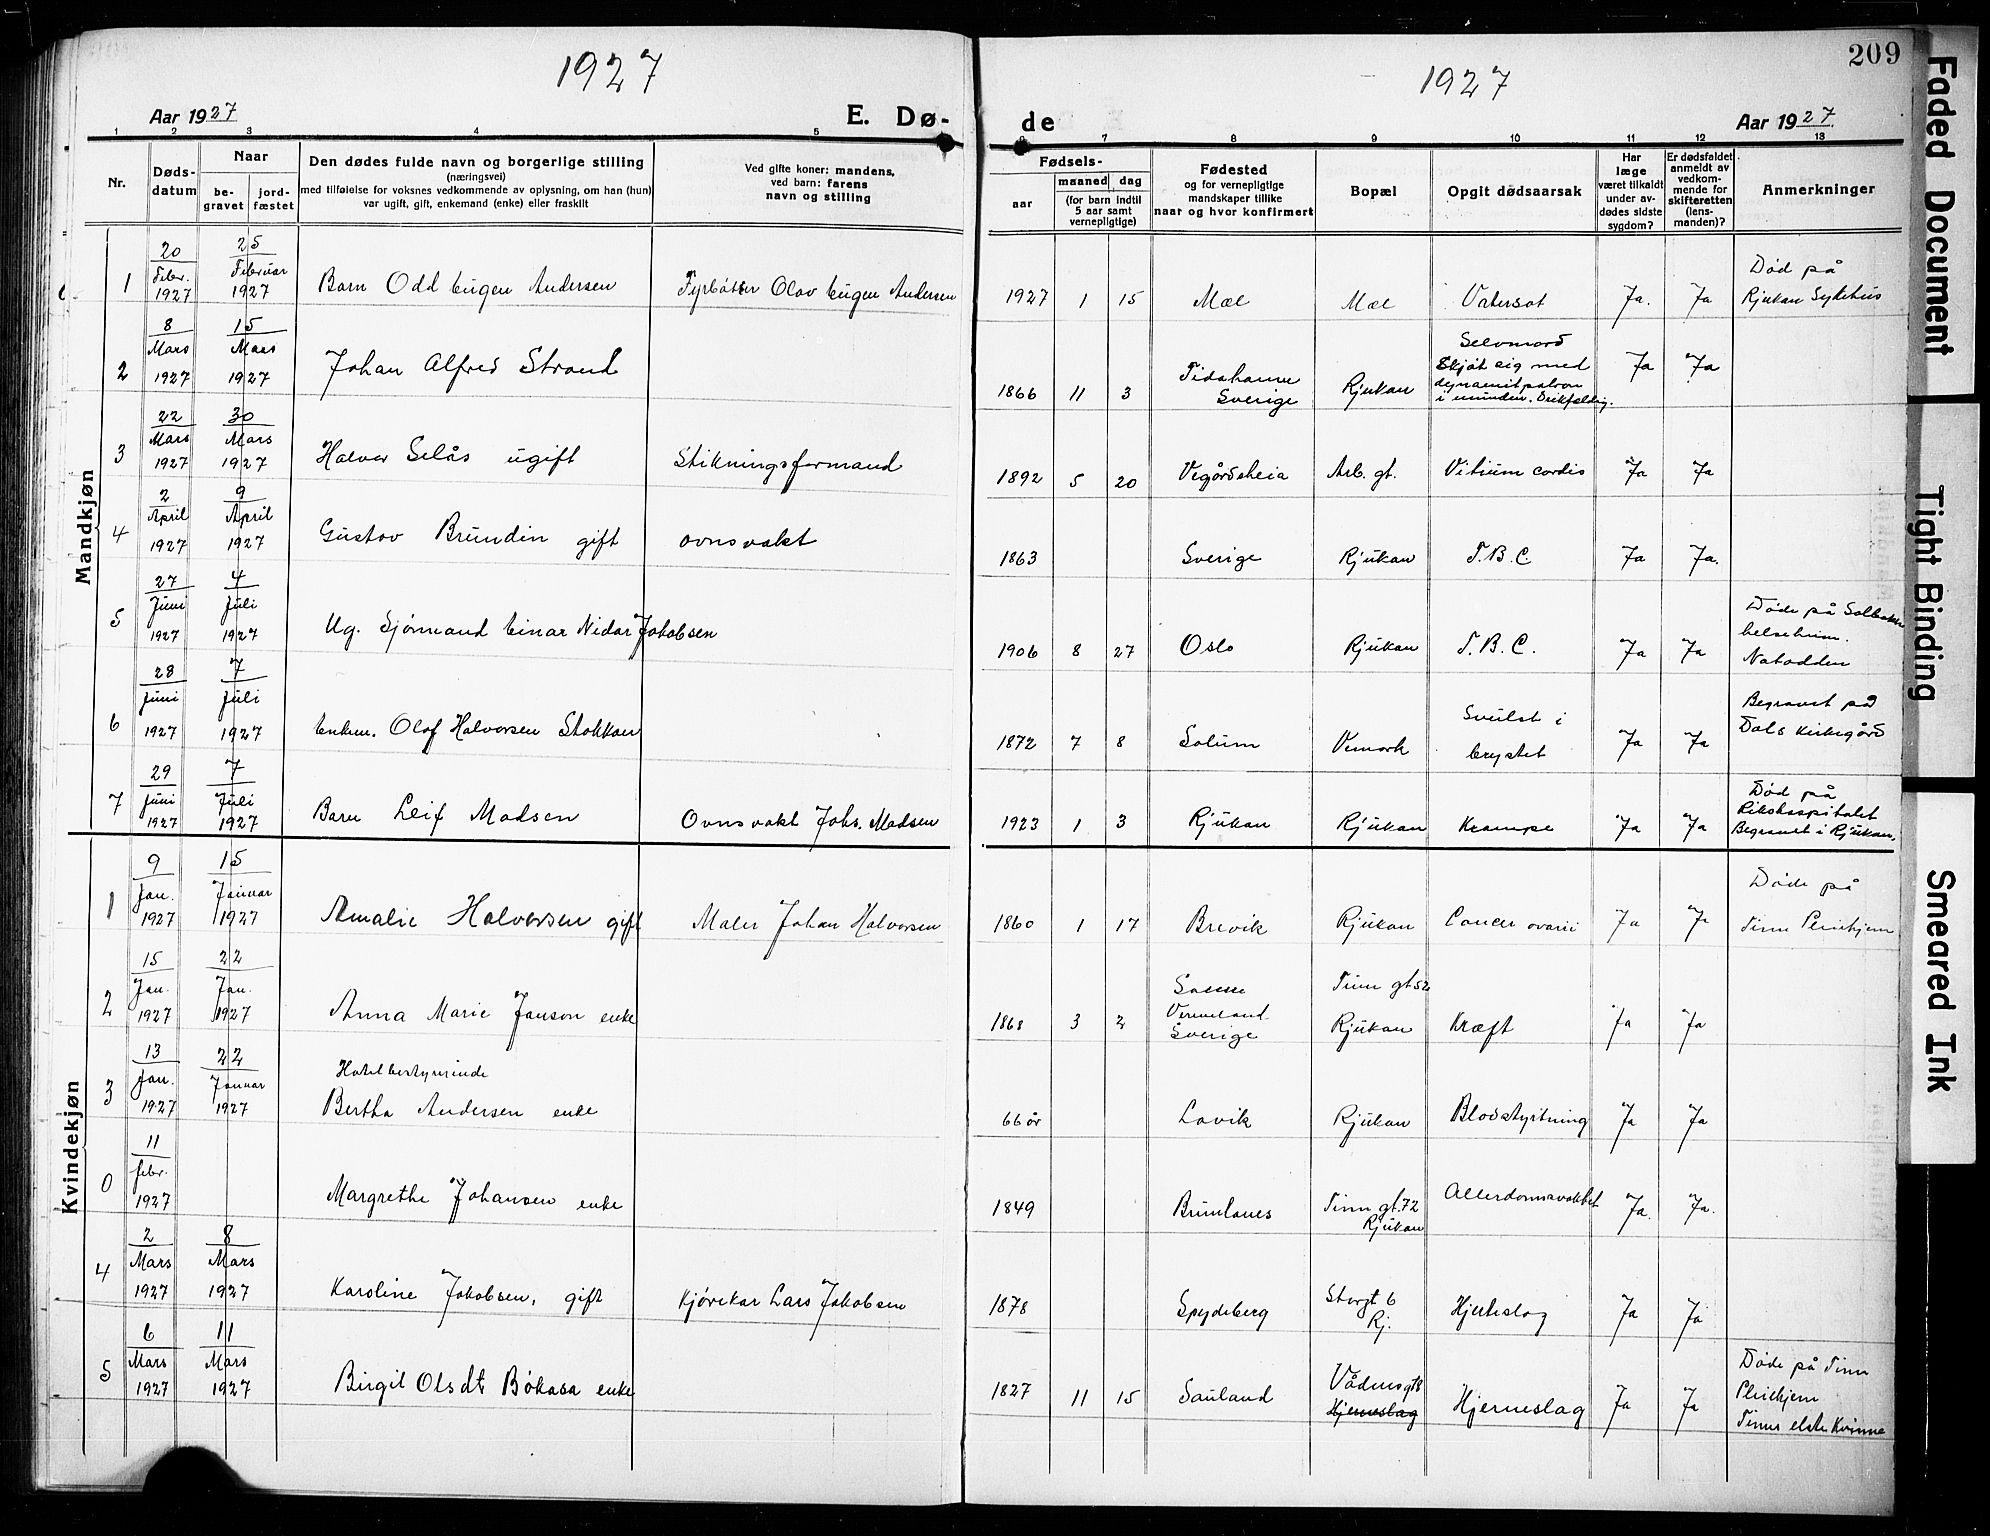 209
1927
1927
Aar 1927
E. Dø-
de
Aar 1927
1 2 3 4 5 6 7 8 9 10 11 12 13
Nr.
Døds-
datum
Naar
be-
gravet
jord-
fæstet
Den dødes fulde navn og borgerlige stilling
(næringsvei)
med tilføielse for voksnes vedkommende av oplysning, om han (hun)
var ugift, gift, enkemand (enke) eller fraskilt
Ved gifte koner: mandens,
ved barn: farens
navn og stilling
Fødsels-
aar
maaned
dag
(for barn indtil
5 aar samt
vernepligtige)
Fødested
og for vernepligtige
mandskaper tillike
naar og hvor konfirmert
Bopæl
Opgit dødsaarsak
Har
læge
været tilkaldt
under av-
dødes sidste
sygdom?
Er dødsfaldet
anmeldt av
vedkom-
mende for
skifteretten
(lens-
manden)?
Anmerkninger
Mandkjøn
1
20 Febr. 1927
25 Februar 1927
Barn Odd Eugen Andersen
Fyrbøter Olav Eugen Andersen
1927 1 15
Mæl
Mæl
Vatersot
Ja.
Ja
Død på
Rjukan Sykehus
2
8 Mars 1927
15 Mars 1927
Johan Alfred Strand
1866 11 3
Tidaharne
Sverige
Rjukan
Selvmord
Skjøt sig med
dynamitpatron
i munden.
Ja
Ja
3
22 Mars 1927
30 Mars 1927
Halvor Selås ugift
Stikningsformand
1892 5 20
Vegårdsheia
Arb. gt.
Vitium cordis
Ja
Ja
4
2 April 1927
9 April 1927
Gustav Brundin gift
ovnsvakt
1863
Sverige
Rjukan
T.B.C.
Ja
Ja.
5
27 Juni 1927
4 Juli 1927
Ug. Sjømand Einar Nidar Jakobsen
1906 8 27
Oslo
Rjukan
T.B.C.
Ja
Ja
Døde på Solbakken
helseheim.
Notodden
6
28 Juni 1927
7 Juli 1927
Enkem. Olaf Halvorsen Stokkan
1872 7 8
Solum
Vemork
Svulst i
brystet
Ja
Ja
Begravet på
Dals Kirkegård
7
29 Juni 1927
7 Juli 1927
Barn Leif Madsen
Ovnsvakt Johs. Madsen
1923 1 3
Rjukan
Rjukan
Krampe
Ja
Ja
Død på
Rikshospitalet
Begravet i Rjukan.
Kvindekjøn
1
9 Jan. 1927
15 Januar 1927
Amalie Halvorsen gift
Maler Johan Halvorsen
1860 1 17
Brevik
Rjukan
Cancer ovarii
Ja
Ja
Døde på
Tinn Pleiehjem
2
15 Jan. 1927
22 Jan. 1927
Anna Marie Janson enke
1868 3 2
Vermeland
Sverige
Tinn gt 52
Rjukan
Kræft
Ja
Ja
3
13 Jan. 1927
22 Januar 1927
Hotelbestyrerinde
Bertha Andersen enke
66 år
Lavik
Rjukan
Blodstyrtning
Ja
Ja
0
11 febr. 1927
Margrethe Johansen enke
1849
Brunlanes
Tinn gt. 72
Rjukan
Alderdomssvakhet
Ja.
Ja.
4
2 Mars 1927
8 Mars 1927
Karoline Jakobsen, gift
Kjørekar Lars Jakobsen
1878
Spydeberg
Storgt 6
Rj.
Hjerteslag
Ja
Ja
5
6 Mars 1927
11 Mars 1927
Birgit Olsdt Bøkasa enke
1827 11 15
Sauland
Vådensgt 8
Hjerneslag
Hjerneslag
Ja
Ja
Døde på Tinn
Pleiehjem
Tinns elste Kvinne
Faded Document
Tight Binding
Smeared Ink